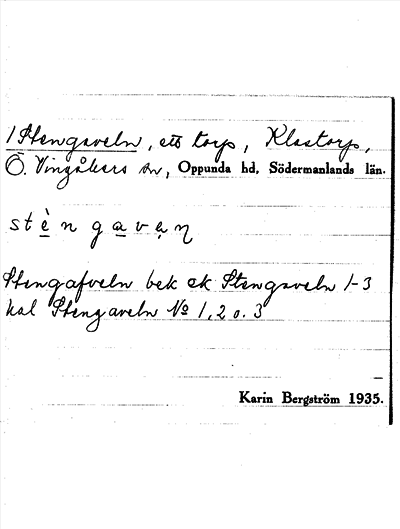 1 Stengaveln, ett torp, Klastorp,
Ö. Vingåkers sn, Oppunda hd, Södermanlands län.
stèngavạn
Stengafveln bek ek Stengaveln 1-3
kal Stengaveln № 1, 2 o. 3
Karin Bergström 1935.